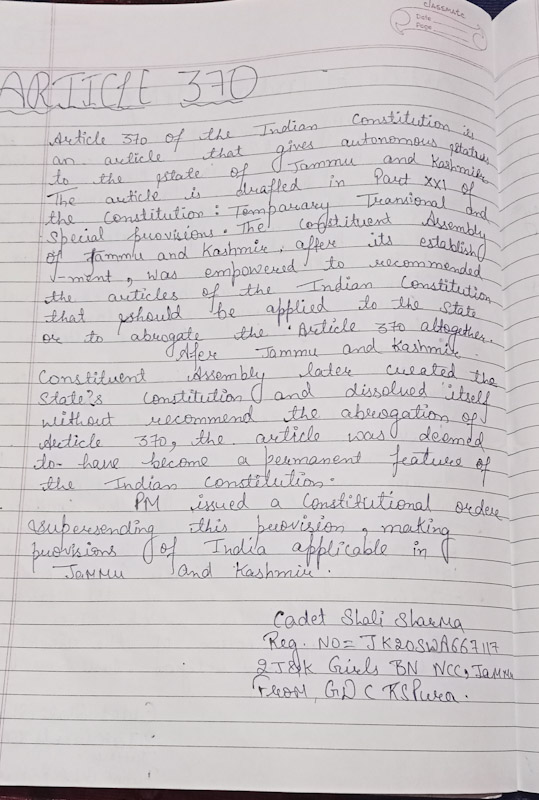 classmate
Date
Page
ARTICLE 370
Article 370 of the Indian Constitution is
an article that gives autonomous status
to the state of Jammu and Kashmir
The article is drafted in Part XXI of
the Constitution: Temparary Transional and
Special provisions. The constituent Assembly
of Jammu and Kashmir, affer its establish
-ment, was empowered to recommended
the articles of the Indian Constitution
that should be applied to the State
or to abrogate the Article 370 altogether.
After Jammu and Kashmir
Constituent Assembly later created the
State's constitution and dissolued itself
without recommend the abrogation of
Article 370, the article was deemed
to have become a permanent feature of
the Indian constitution.
PM issued a Constitutional order
supersending this provision, making
provisions of India applicable in
Jammu and Kashmir.
Cadet Shali Sharma
Reg. NO= JK20SWA667117
2 J&K Girls BN NCC, Jammu
From GDC RS Pura.